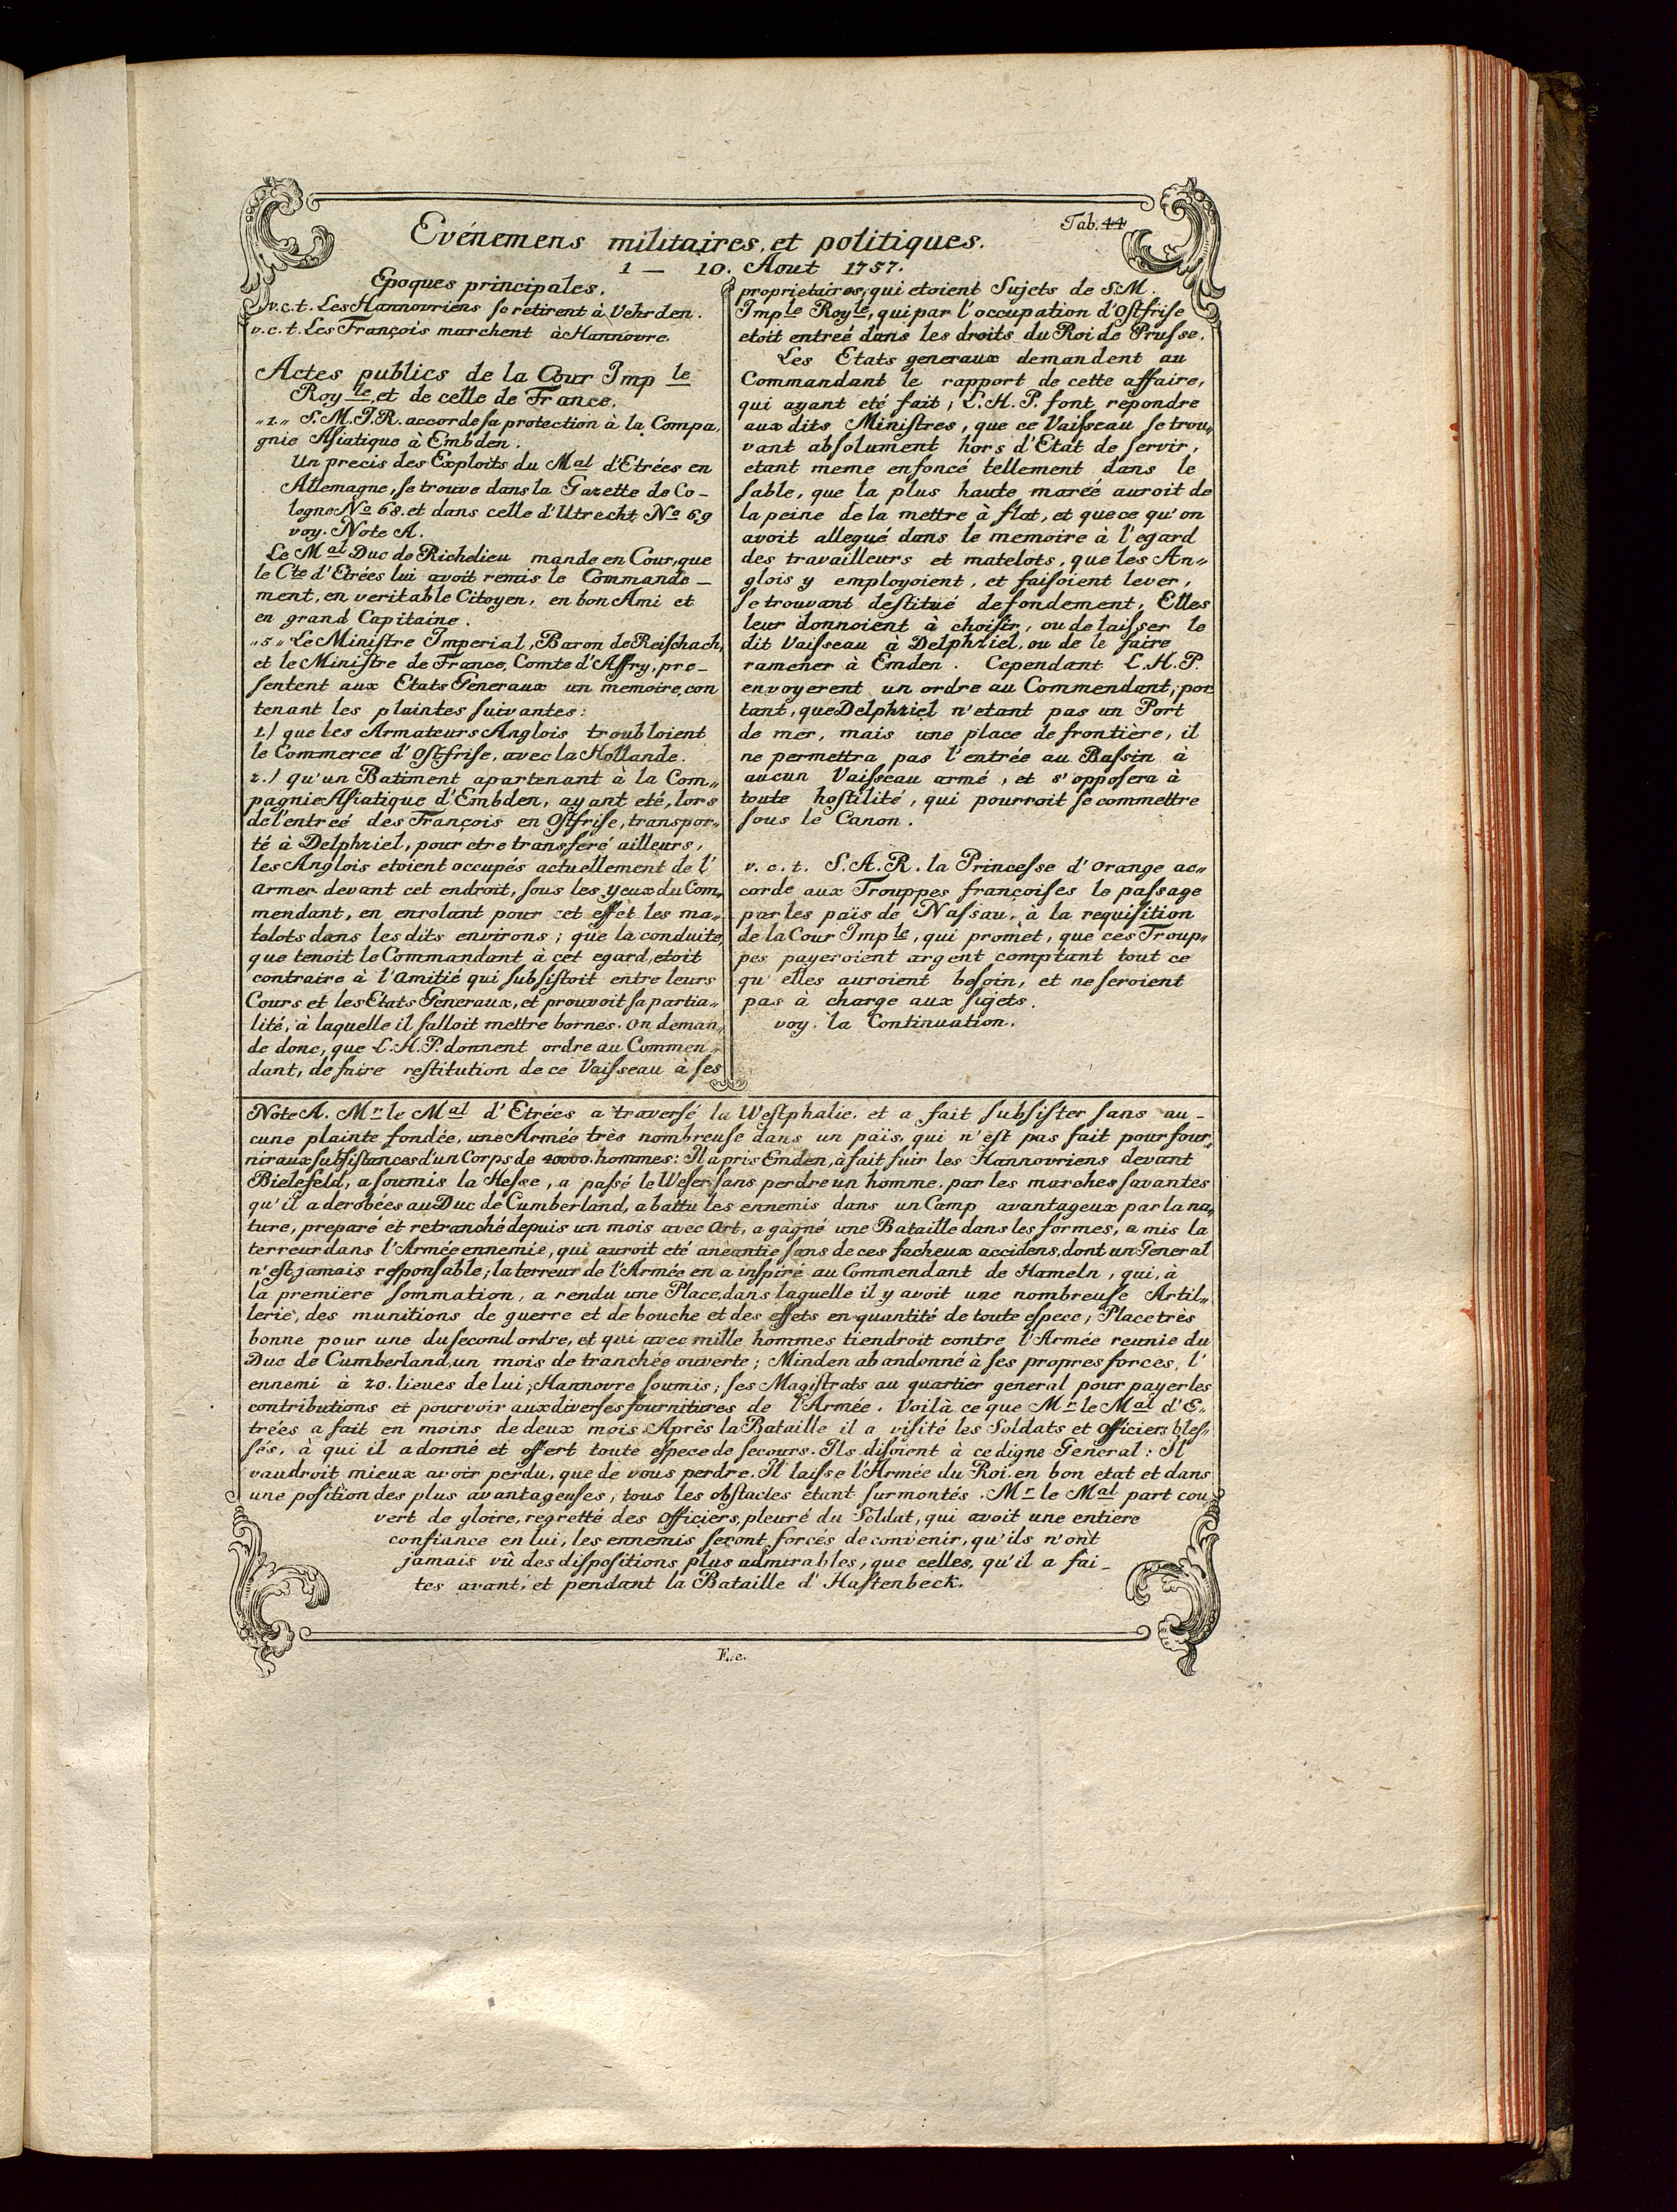 Tab. 44
Evénemens militaires, et politiques.
1 — 10. Aout 1757.
Epoques principales.
v.c.t. Les Hannovriens se retirent à Vehrden.
v.c.t. Les François marchent à Hannovre.
Actes publics de la Cour Imp le
Roy le, et de celle de France.
„1„ S.M.I.R. accorde sa protection à la Compa„
gnie Asiatique à Embden.
Un precis des Exploits du Mal d'Etrées en
Allemagne, se trouve dans la Gazette de Co-
logne No 68. et dans celle d'Utrecht No 69
voy. Note A.
Le Mal Duc de Richelieu mande en Cour, que
le Cte d'Etrées lui avoit remis le Commande-
ment, en veritable Citoyen, en bon Ami et
en grand Capitaine.
„5„ Le Ministre Imperial, Baron de Reischach,
et le Ministre de France, Comte d'Affry, pre-
sentent aux Etats Generaux un memoire, con
tenant les plaintes suivantes:
1.) que les Armateurs Anglois troubloient
le Commerce d'Ostfrise, avec la Hollande.
2.) qu'un Batiment apartenant à la Com„
pagnie Asiatique d'Embden, ayant eté, lors
de l'entreé des François en Ostfrise, transpor„
té à Delphziel, pour etre transferé ailleurs,
les Anglois etoient occupés actuellement de l'
armer devant cet endroit, sous les yeux du Com„
mendant, en enrolant pour cet effet les ma„
telots dans les dits environs; que la conduite,
que tenoit le Commandant à cet egard, etoit
contraire à l'amitié qui subsistoit entre leurs
Cours et les Etats Generaux, et prouvoit sa partia„
lité, à laquelle il falloit mettre bornes. on deman„
de donc, que L.H.P. donnent ordre au Commen„
dant, de faire restitution de ce Vaisseau à ses
proprietaires, qui etoient Sujets de S.M.
Imple Royle, qui par l'occupation d'Ostfrise
etoit entreé dans les droits du Roi de Prusse.
Les Etats generaux demandent au
Commandant le rapport de cette affaire,
qui ayant eté fait; L.H.P. font repondre
aux dits Ministres, que ce Vaisseau se trou„
vant absolument hors d'Etat de servir,
etant meme enfoncé tellement dans le
sable, que la plus haute mareé auroit de
la peine de la mettre à flot, et que ce qu'on
avoit allegué dans le memoire à l'egard
des travailleurs et matelots, que les An„
glois y employoient, et faisoient lever,
se trouvant destitué de fondement, Elles
leur donnoient à choisir, ou de laisser le
dit Vaisseau à Delphziel, ou de le faire
ramener à Emden. Cependant L.H.P.
envoyerent un ordre au Commendant, por
tant, que Delphziel n'etant pas un Port
de mer, mais une place de frontière, il
ne permettra pas l'entrée au Bassin à
aucun Vaisseau armé, et s'opposera à
toute hostilité, qui pourroit se commettre
sous le Canon.
v. c. t. S.A.R. la Princesse d'Orange ac„
corde aux Trouppes françoises le passage
par les païs de Nassau, à la requisition
de la Cour Imp le, qui promet, que ces Troup„
pes payeroient argent comptant tout ce
qu'elles auroient besoin, et ne seroient
pas à charge aux sujets.
voy. la Continuation.
Note A. Mr le Mal d'Etrées a traversé la Westphalie, et a fait subsister sans au-
cune plainte fondée, une Armée très nombreuse dans un païs, qui n'est pas fait pour four„
nir aux subsistances d'un Corps de 20000. hommes: Il a pris Emden, à fait fuir les Hannovriens devant
Bielefeld, a soumis la Hesse, a passé le Weser sans perdre un homme, par les marches savantes
qu'il a derobées au Duc de Cumberland, a battu les ennemis dans un Camp avantageux par la na„
ture, preparé et retranché depuis un mois avec art, a gagné une Bataille dans les formes, a mis la
terreur dans l'Armée ennemie, qui auroit eté anéantie sans de ces facheux accidens, dont un General
n'est jamais responsable; la terreur de l'Armée en a inspiré au Commendant de Hameln, qui, à
la premiere sommation, a rendu une Place, dans laquelle il y avoit une nombreuse Artil„
lerie, des munitions de guerre et de bouche et des effets en quantité de toute espece; Place très
bonne pour une du second ordre, et qui avec mille hommes tiendroit contre l'Armée reunie du
Duc de Cumberland, un mois de tranchée ouverte; Minden abandonné à ses propres forces, l'
ennemi à 20. lieues de lui; Hannovre soumis; ses Magistrats au quartier general pour payer les
contributions et pourvoir aux diverses fournitures de l'Armée. Voilà ce que Mr le Mal d'E„
trées a fait en moins de deux mois. Après la Bataille il a visité les Soldats et officiers bles„
sés, à qui il a donné et offert toute espece de secours. Ils disoient à ce digne General: Il
vaudroit mieux avoir perdu, que de vous perdre. Il laisse l'Armée du Roi en bon etat et dans
une position des plus avantageuses, tous les obstacles étant surmontés. Mr le Mal part cou„
vert de gloire, regretté des officiers, pleuré du Soldat, qui avoit une entiere
confiance en lui, les ennemis seront forcés de convenir, qu'ils n'ont
jamais vû des dispositions plus admirables, que celles, qu'il a fai-
tes avant, et pendant la Bataille d'Hastenbeck.
E.e.